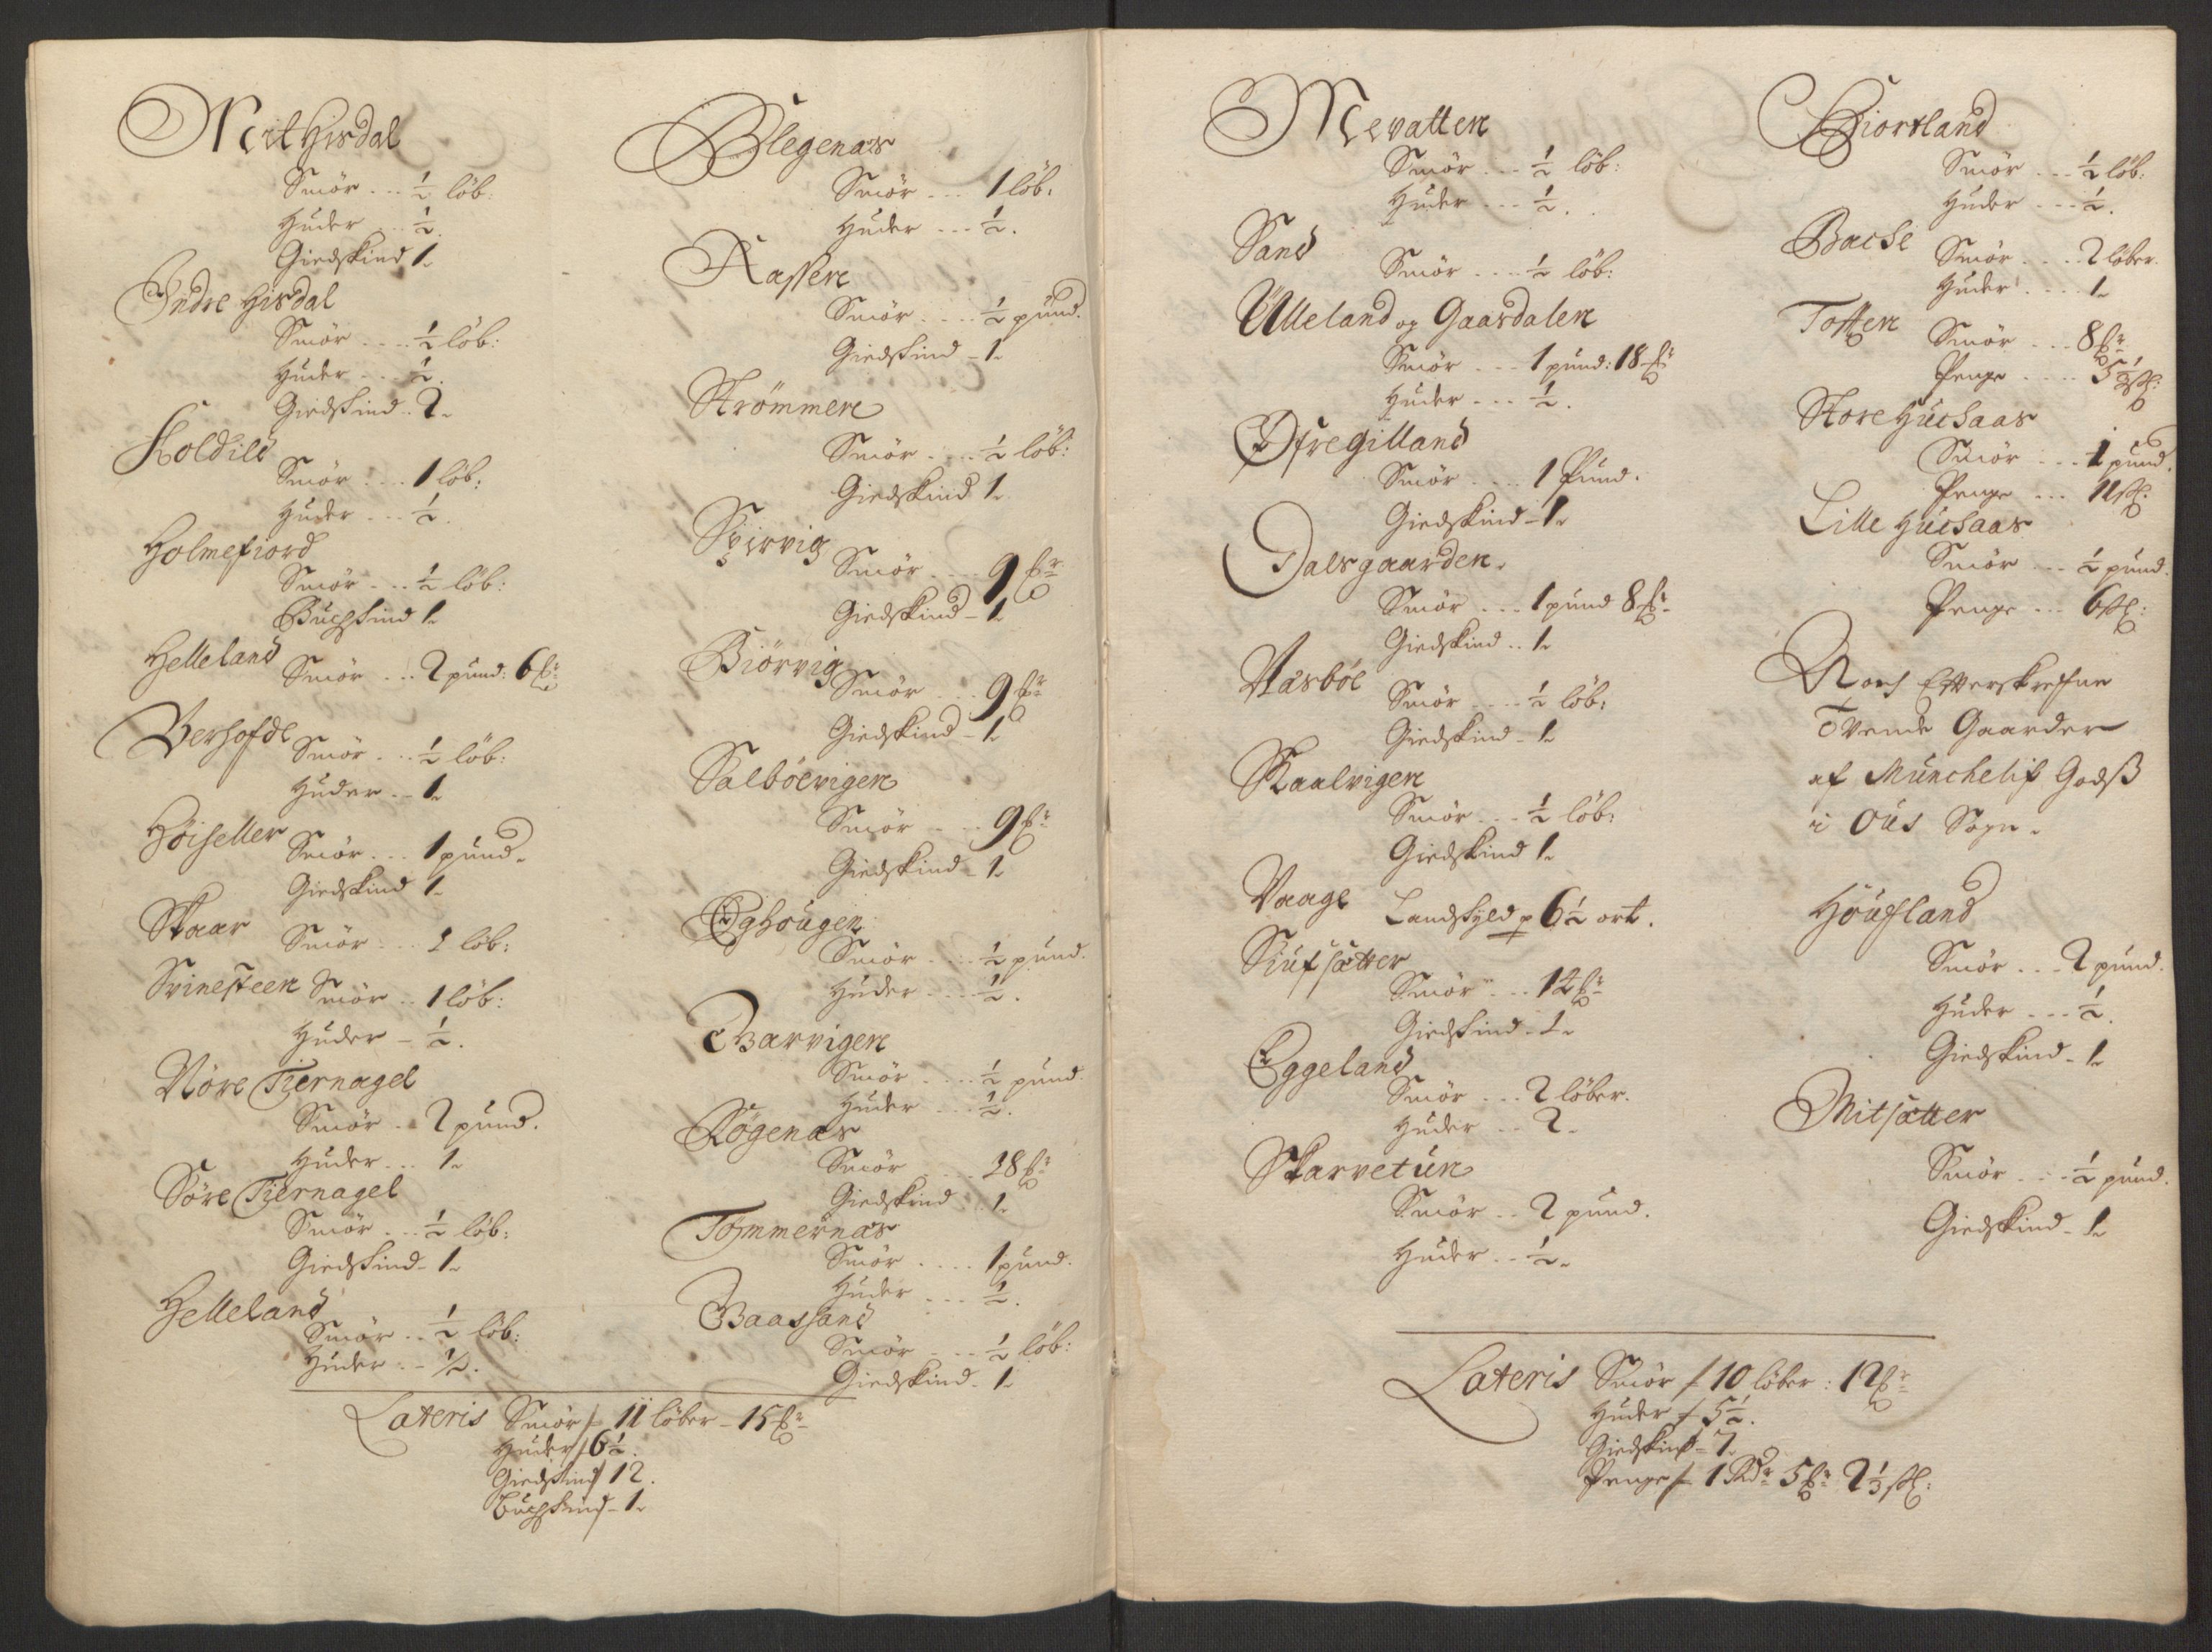 Mit Hisdal
Smör ... ½ löb:
Huder ... ½.
Giedskind 1.
Indre Hisdal
Smör .... ½ löb:
Huder ... ½.
Giedskind . 2.
Koldilé
Smör ... 1 löb:
Huder ... ½.
Holmefiord
Smör ... ½ löb:
Buchskind 1.
Helleland
Smör ... 2 pund: 6
Berhofde
Smör ... ½ löb:
Huder .. 1.
Höiseller
Smör ... 1 pund.
Giedskind 1.
Skaar
Smör ... 1 löb:
Svinesteen Smör .. 1 löb:
Huder - ½.
Nöre Tiernagel
Smör .. 2 pund.
Huder ... 1.
Söre Tiernagel
Smör ... ½ löb:
Giedskind - 1.
Helleland
Smör .. ½ löb:
Huder .. ½.
Lateris Smör 11 löber - 15
Huder 6½.
Giedskind 12.
Buchskind - 1.
Blegenæs
Smör ... 1 löb:
Huder ... ½.
Kassen
Smör .... ½ pund.
Giedskind - 1.
Strömmen
Smör .... ½ löb:
Giedskind 1.
Smör .... 9
Giedskind - 1.
Biörvig
Smör ... 9
Giedskind - 1.
Salböevigen
Smör .... 9
Giedskind - 1.
Eghougen
Smör .... ½ pund.
Huder .... ½.
Barvigen
Smör .... ½ pund.
Huder ... ½.
Rögenæs
Smör .... 18
Giedskind .. 1.
Tömmernæs
Smör .... 1 pund.
Huder ... ½.
Baassand
Smör ... ½ löb:
Giedskind - 1.
Mevatten
Smör ... ½ löb:
Huder ... ½.
Sand
Smör .... ½ löb:
Ülleland og Gaasdalen
Smör ... 1 pund: 18
Huder ... ½.
Öfre Gilland
Smör .... 1 Pund.
Giedskind - 1.
Dalsgaarden.
Smör ... 1 pund 8
Giedskind .. 1.
Næsböe
Smör .... ½ löb:
Giedskind - 1.
Skaalvigen
Smör ... ½ löb:
Giedskind 1.
Vaage
Landskyld p 6½ ort.
Siufsætter
Smör ... 12
Giedskind - 1.
Eggeland
Smör ... 2 löber.
Huder .. 2.
Skarvetun
Smör .. 2 pund.
Huder .. ½.
Lateris Smör 10 löber: 12
Huder 5½.
Giedskind - 7.
Penge 1 Rdr 5 2⅓ sk:
Biortland
Smör ... ½ löb:
Huder ... ½.
Bache
Smör .... 2 löber.
Huder .... 1.
Toften
Smör ... 8
Penge .... 5⅓ sk:
Store Huchaas
Smör ... 1 pund.
Penge ... 11 sk.
Lille Huchaas
Smör ... ½ pund.
Penge ... 6 sk:
Noch Efterskrefne
Tvende Gaarder
af Munchelif Godß
i Ous Sogn.
Höufland
Smör ... 2 pund.
Huder ... ½.
Giedskind - 1.
Mitsætter
Smör ... ½ pund.
Giedskind - 1.